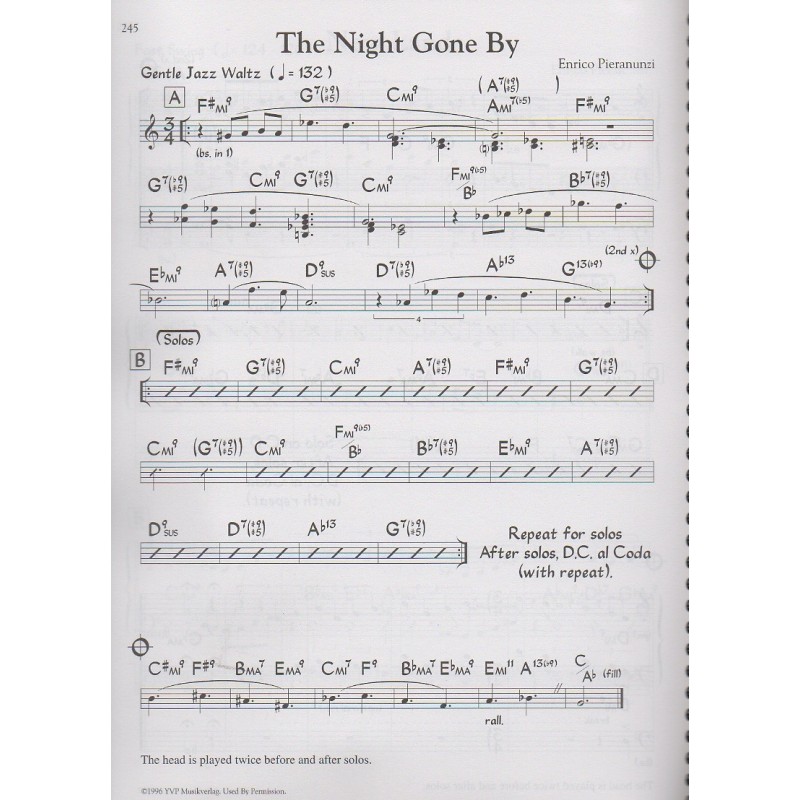 245
The Night Gone By
Enrico Pieranunzi
Gentle Jazz Waltz (♩= 132)
A
F#MI9 G7(♭9 #5) CMI9 (A7(♭9 #5)) AMI7(♭5) F#MI9
3/4
(bs. in 1)
G7(♭9 #5) CMI9 G7(#9 #5) CMI9 FMI9(♭5)/B♭ B♭7(♭9 #5)
(2nd x)
E♭MI9 A7(#9 #5) D9SUS D7(#9 #5) A♭13 G13(♭9)
4
(Solos)
B
F#MI9 G7(#9 #5) CMI9 A7(#9 #5) F#MI9 G7(#9 #5)
CMI9 (G7(#9 #5)) CMI9 FMI9(♭5)/B♭ B♭7(#9 #5) E♭MI9 A7(#9 #5)
D9SUS D7(#9 #5) A♭13 G7(♭9 #5)
Repeat for solos
After solos, D.C. al Coda
(with repeat).
C#MI9 F#9 BMA7 EMA9 CMI7 F9 B♭MA7 E♭MA9 EMI11 A13(♭9) C/A♭ (fill)
rall.
The head is played twice before and after solos.
©1996 YVP Musikverlag. Used By Permission.